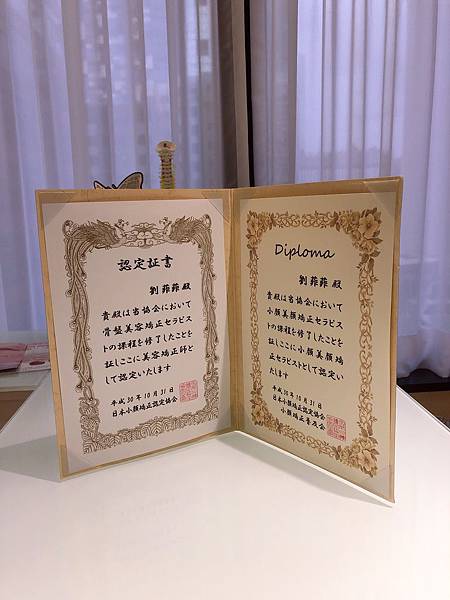 認定証書
劉菲菲 殿
貴殿は当協会において
骨盤美容矯正セラピス
トの課程を修了したことを
証しここに美容矯正師と
して認定いたします
平成30年10月31日
日本小顔矯正認定協会
Diploma
劉菲菲 殿
貴殿は当協会において
小顔美顔矯正セラピス
トの課程を修了したことを
証しここに小顔美顔矯
正セラピストとして認定い
たします
平成30年10月31日
日本小顔矯正認定協会
小顔矯正普及会